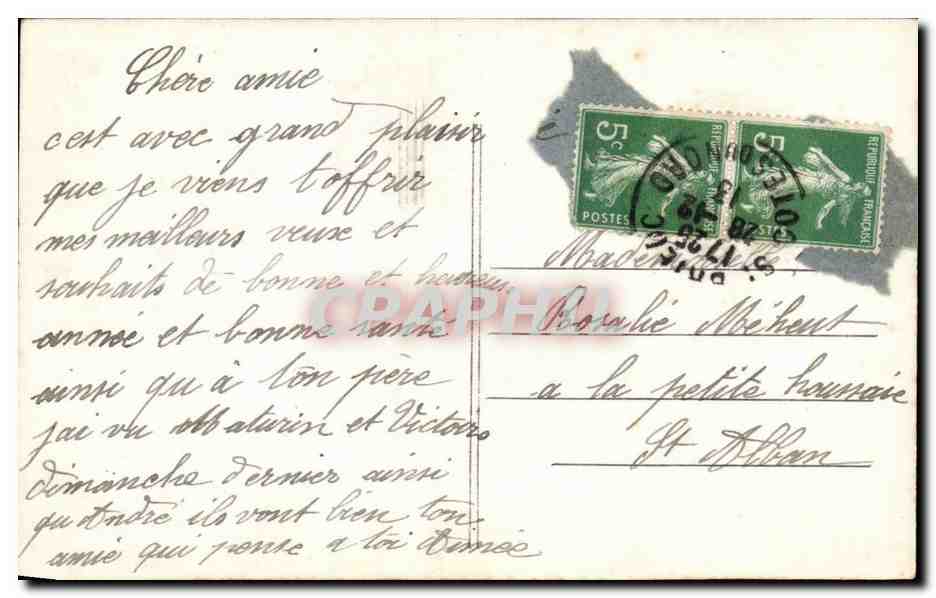 Chère amie
cest avec grand plaisir
que je viens t'offrir
mes meilleurs veux et
souhaits de bonne et heureus
année et bonne santé
ainsi qu'à ton père
jai vu Maturin et Victoire
dimanche dernier ainsi
qu'André ils vont bien ton
amie qui pense a toi Aimée
Mademoiselle
Rosalie Méheut
a la petite houssaie
St Alban
5c
REPUBLIQUE FRANÇAISE
POSTES
5c
REPUBLIQUE FRANÇAISE
POSTES
St BRIEUC
17 25
28 - 12
13
COTES DU NORD
CPARAMA